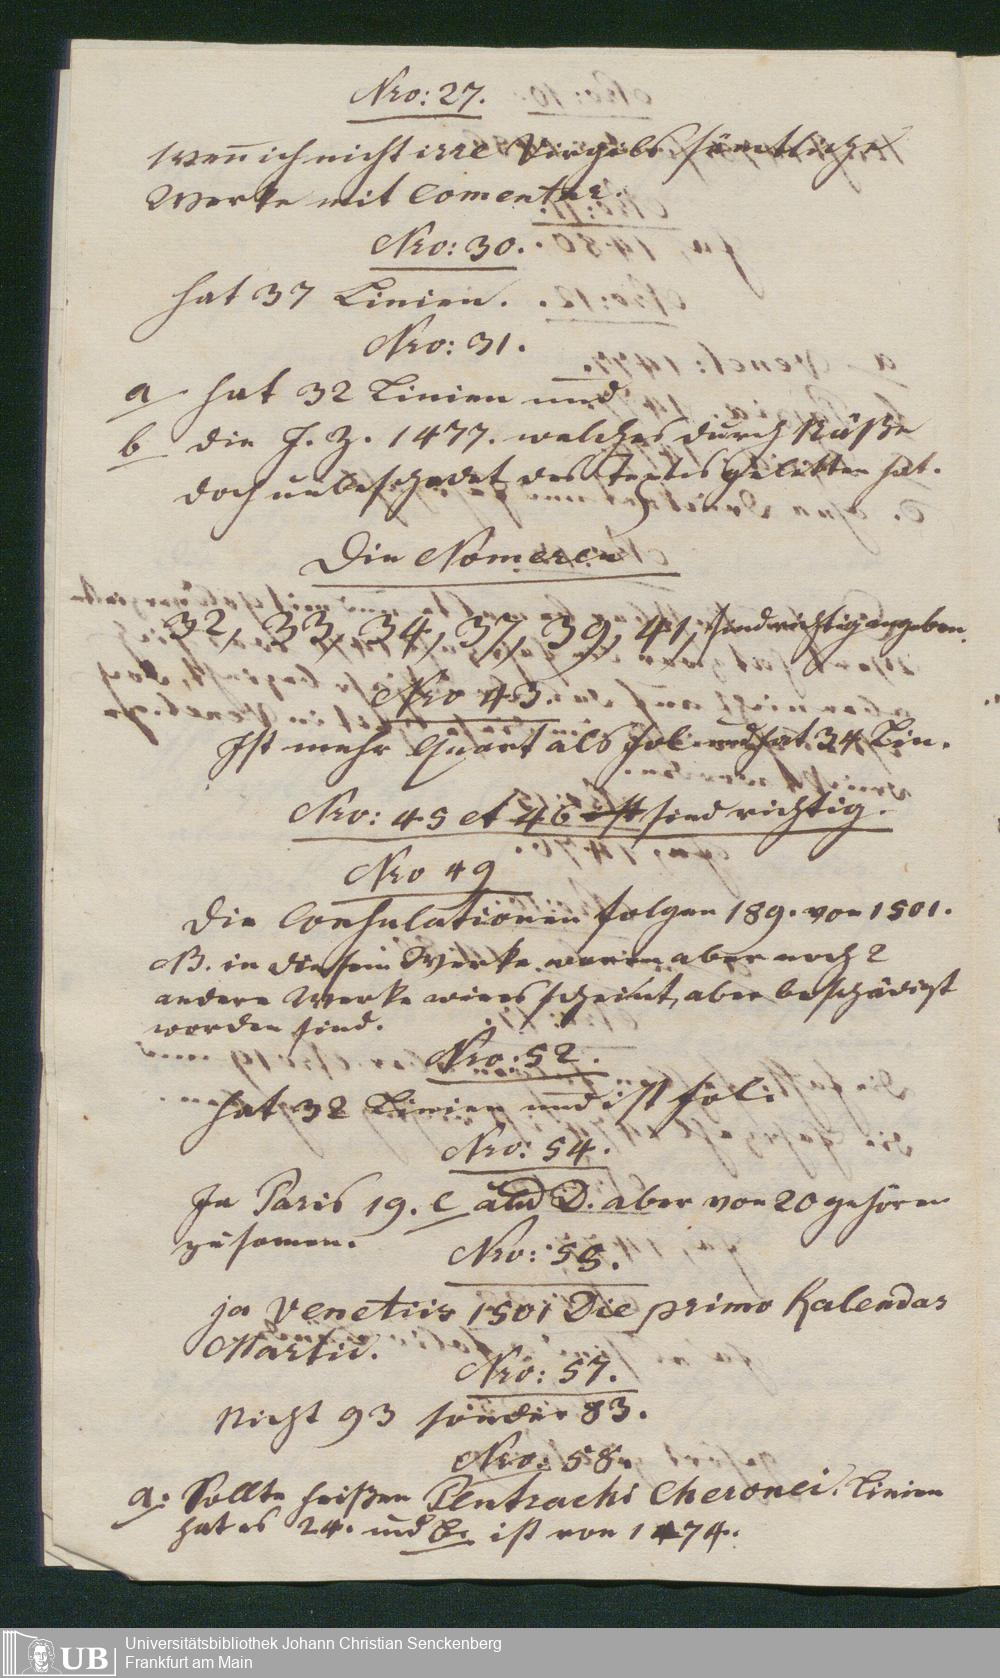 Nro: 27.
Wen̄ ich nicht irre Virgils sämtliche
Werke mit Comentar.
Nro: 30.
hat 37 Linien.
Nro: 31.
a hat 32 Linien und
b die J. Z. 1477. welches durch Nüße
doch unbeschadet des Textes gelitten hat.
Die Nomeren
32, 33, 34, 37, 39, 41, sind richtig angeben.
Nro 43.
Ist mehr Quart als fol. und hat 34 Lin.
Nro: 45 et 46 ist sind richtig.
Nro 49
Die Consulationen folgen 189. von 1501.
NB. in diesem Werke waren aber noch 2
andere Werke wie es scheint, aber beschädigt
worden sind.
Nro: 52.
hat 32 Linien und ist fol:
Nro: 54.
In Paris 19. C und D. aber von 20 gehören
zusamen.
Nro: 55.
ja Venetiis 1501 Die primo Kalendas
Martii.
Nro: 57.
Nicht 93 sonder 83.
Nro: 58.
a: Sollte heißen Plutrachi Cheronei. Linien
hat es 24. und b. ist von 1474.
UB
Universitätsbibliothek Johann Christian Senckenberg
Frankfurt am Main